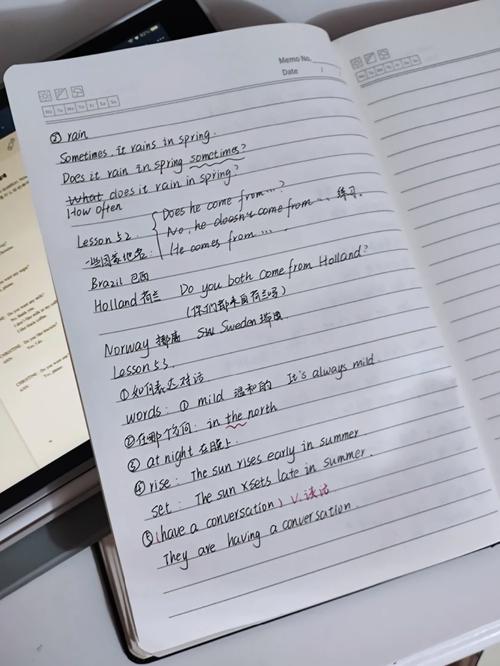 Memo No.
Date /
Mo Tu We Th Fr Sa Su
② rain
Sometimes, it rains in spring.
Does it rain in spring sometimes?
What does it rain in spring?
How often
Lesson 52
Does he come from...?
No, he doesn't come from ... 练习.
He comes from ...
一些国家地名:
Brazil 巴西
Holland 荷兰 Do you both come from Holland?
(你们都来自荷兰吗)
Norway 挪威 SW Sweden 瑞典
Lesson 53
①如何表达对话
words: ① mild 温和的 It's always mild
②在哪个方向: in the north
③ at night 在晚上
④ rise: The sun rises early in summer
set: The sun sets late in summer.
⑤ (have a conversation) v. 谈话
They are having a conversation.